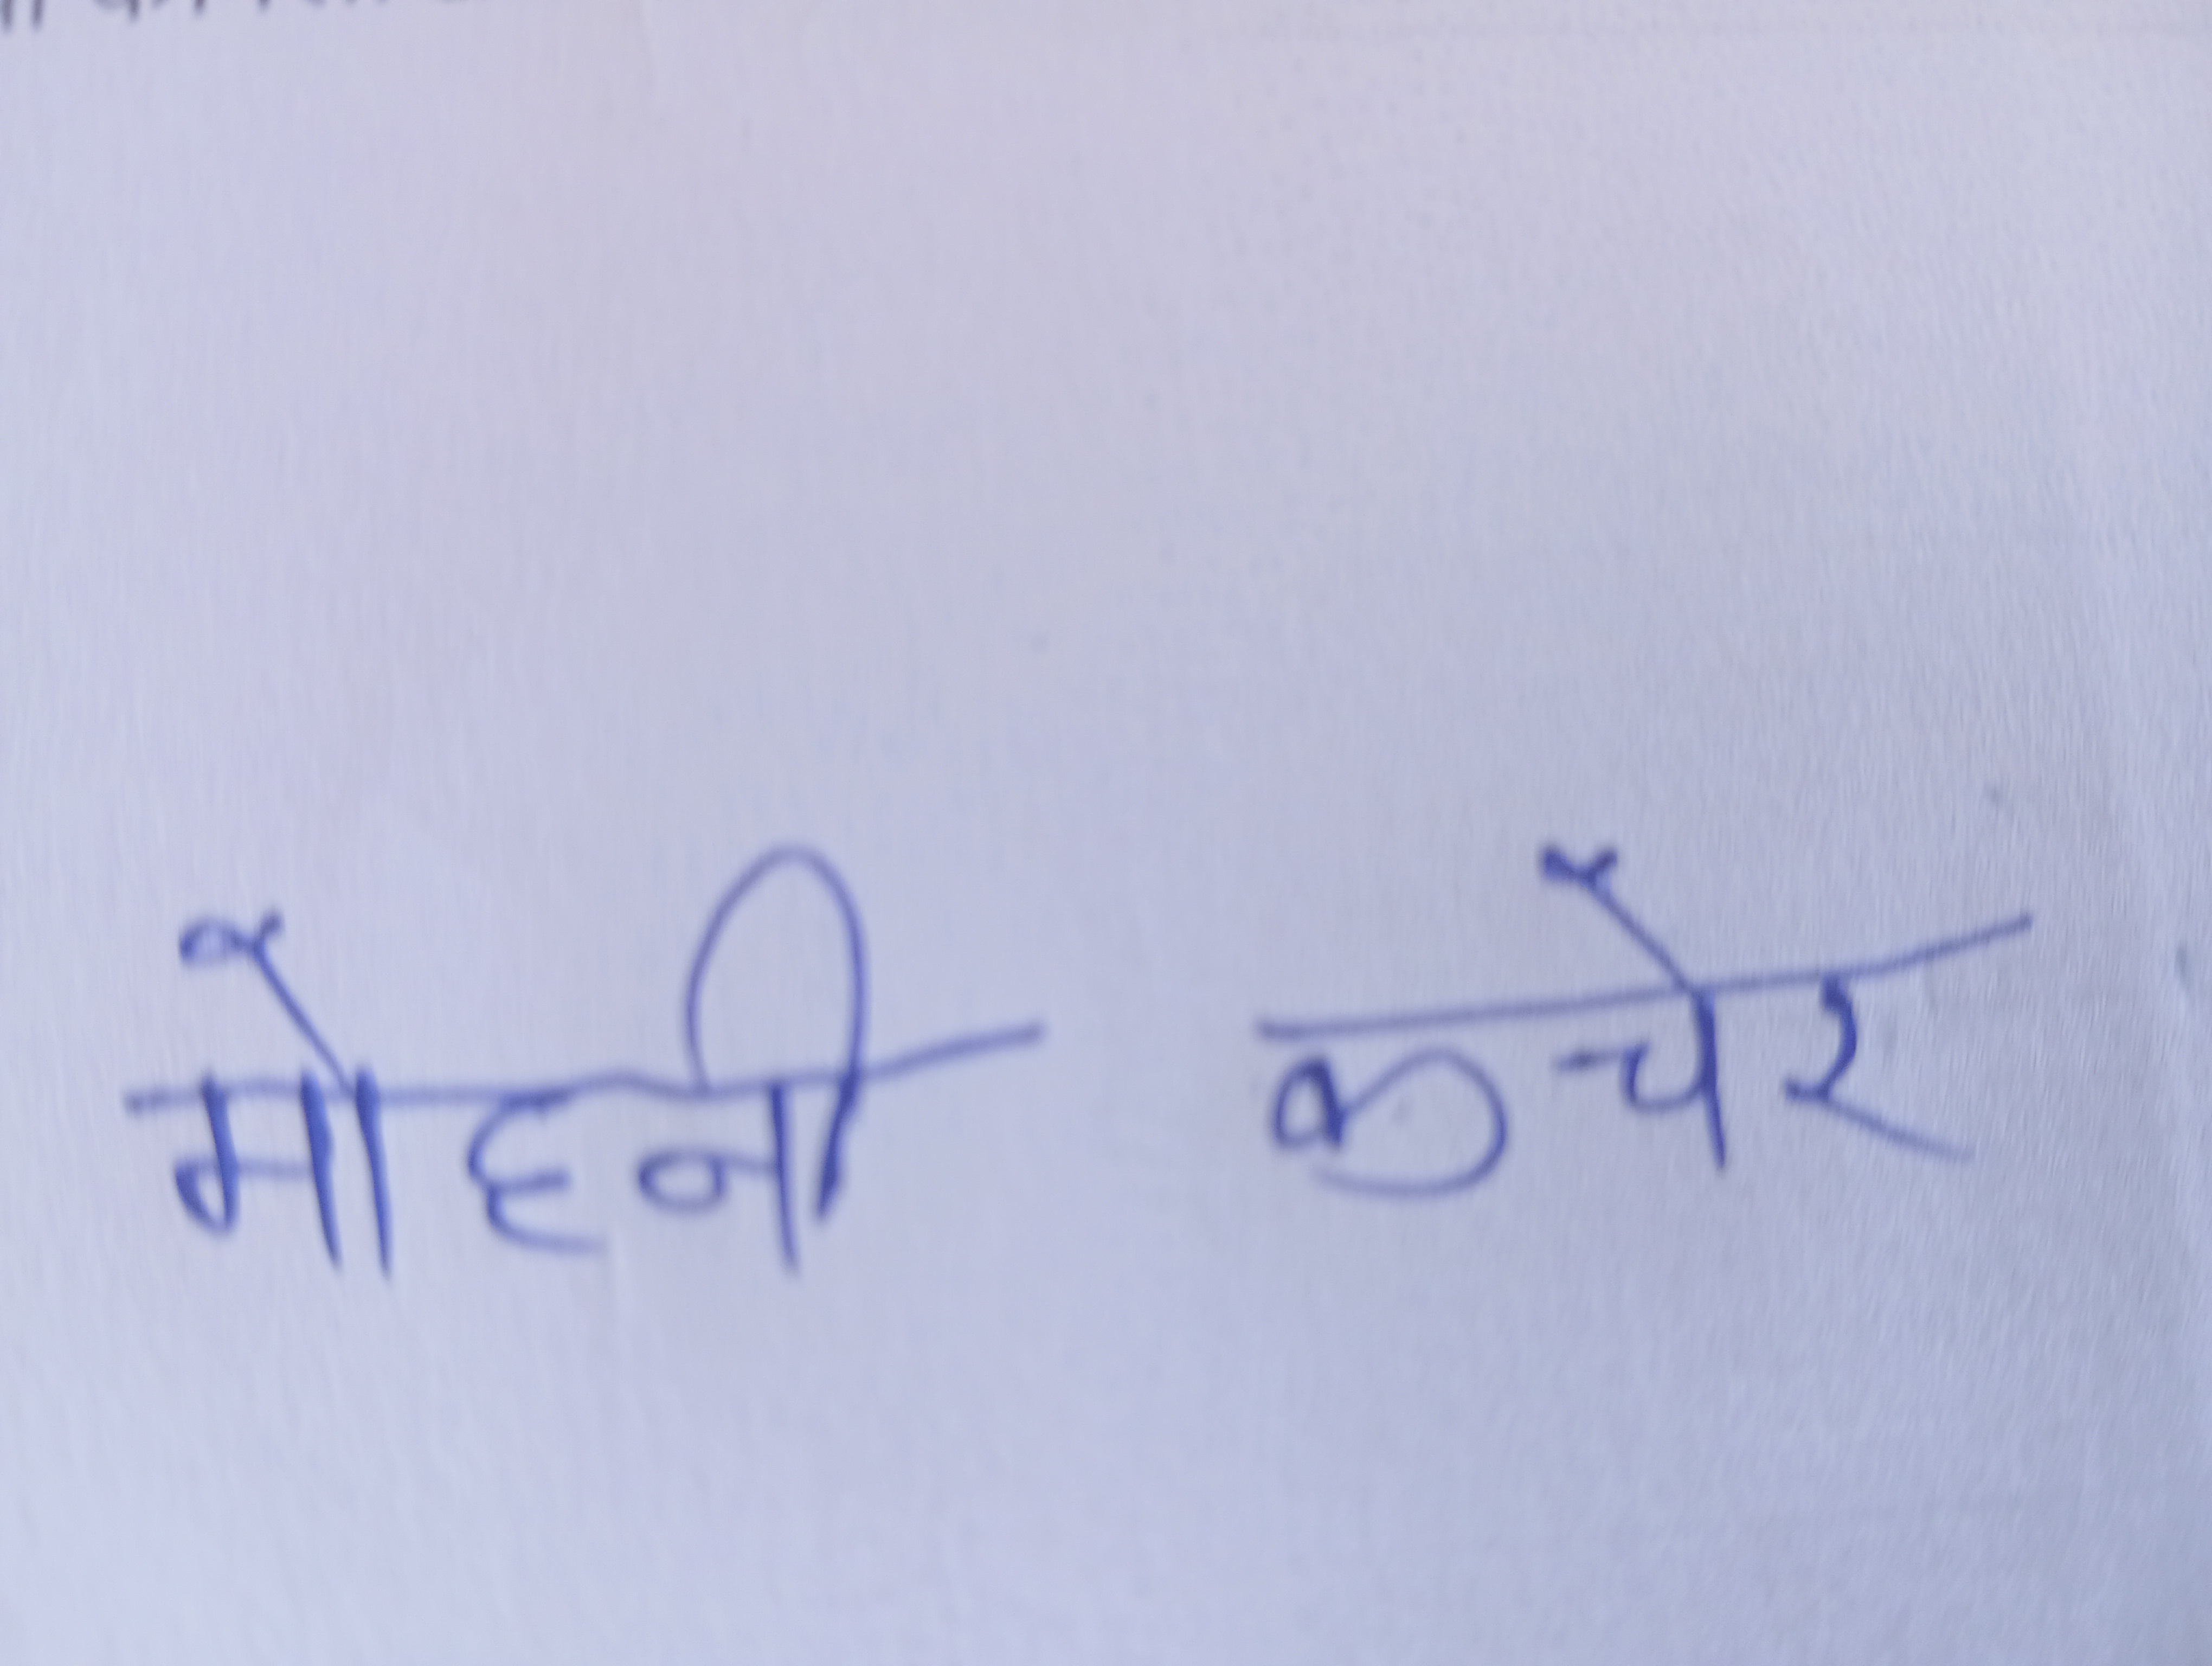 मोहनी कचेर